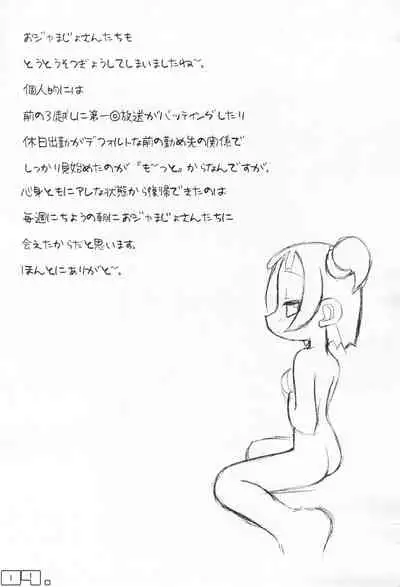 おジャまじょさんたちも
とうとうそつぎょうしてしまいましたね〜。
個人的には
前の引越しに第一回放送がバッティングしたり
休日出勤がデフォルトな前の勤め先の関係で
しっかり見始めたのが『も〜っと』からなんですが、
心身ともにアレな状態から復帰できたのは
毎週にちようの朝におジャまじょさんたちに
会えたからだと思います。
ほんとにありがと〜。
04.